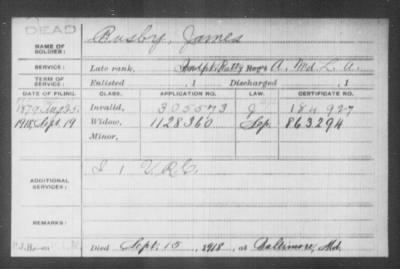 DEAD
NAME OF SOLDIER: Busby, James
SERVICE: Late rank, Indpt. Batty A, Md. L. A.
TERM OF SERVICE: Enlisted , 1 Discharged , 1
DATE OF FILING. CLASS. APPLICATION NO. LAW. CERTIFICATE NO.
1879 Aug 25 Invalid, 305573 184927
1918, Sept. 19 Widow, 1128360 Sep. 863294
Minor,
ADDITIONAL SERVICES: I 1 V.R.C.
REMARKS:
Died Sept. 15, 1918, at Baltimore, Md.